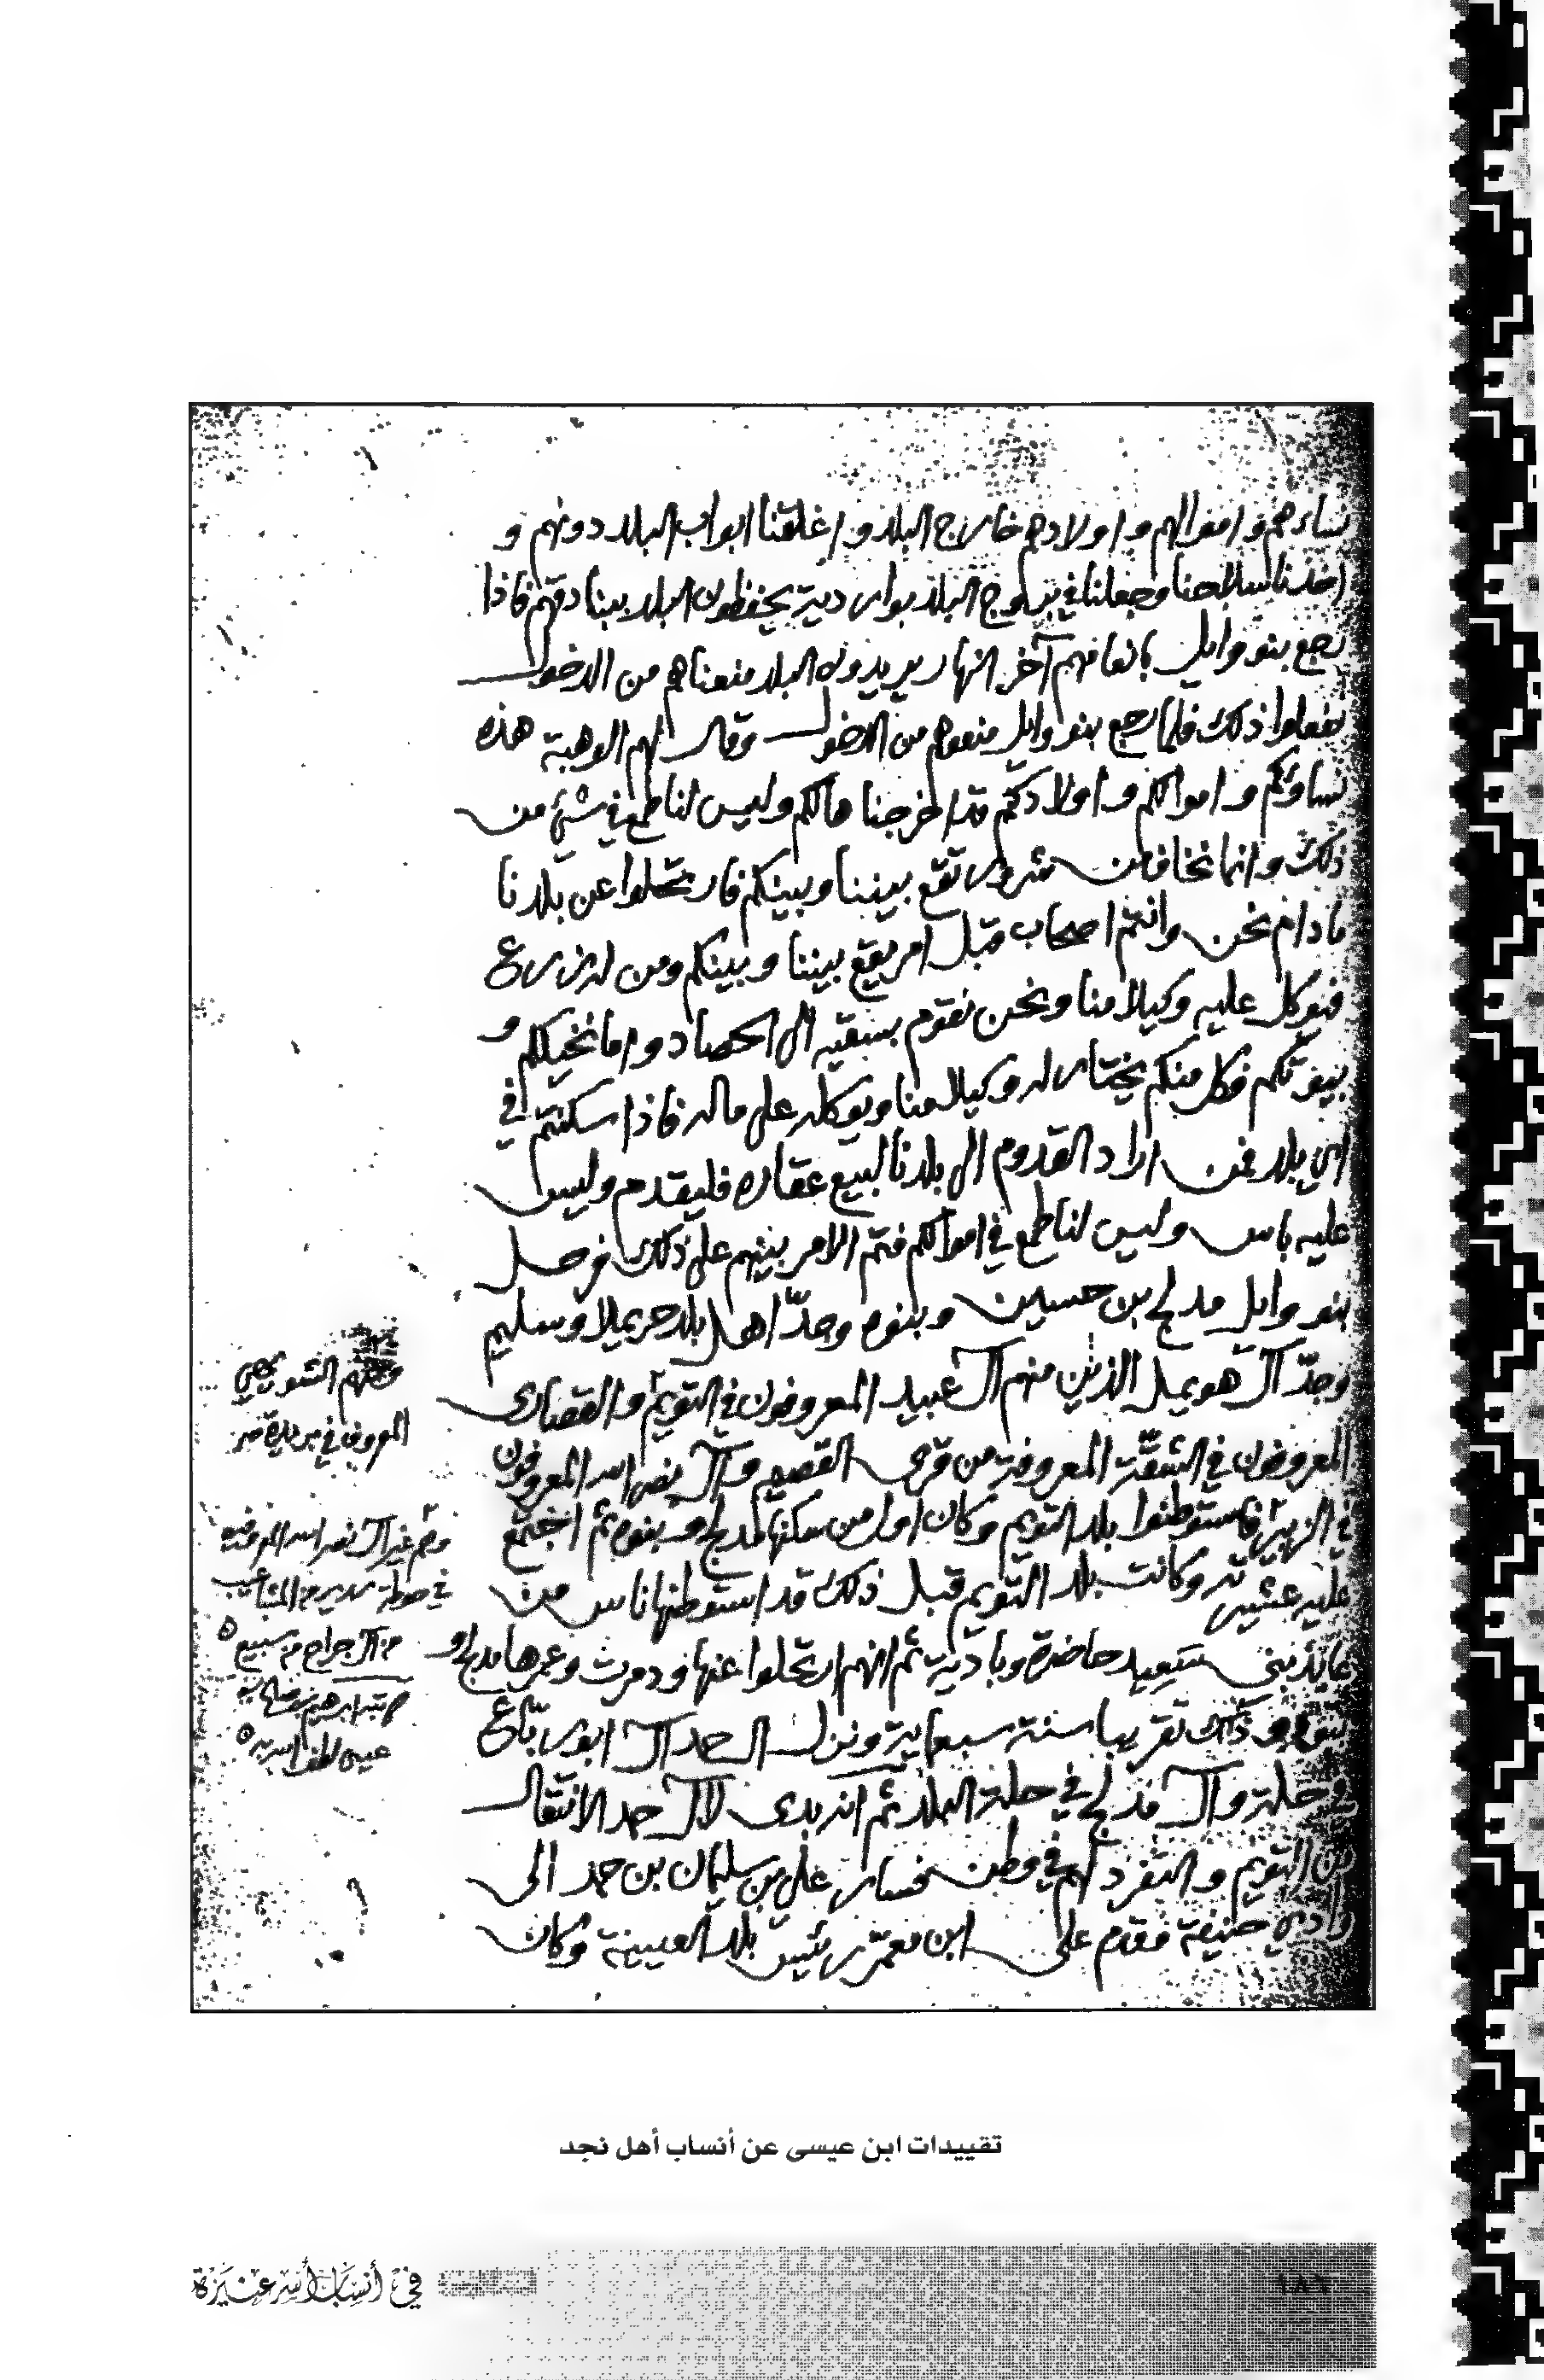 نساءهم واموالهم واولادهم خارج البلد واغلقنا ابواب البلد دونهم و
اخذنا سلاحنا وجعلنا في بروج البلد بواردية يحفظون البلد ببنادقهم فاذا
رجع بنو وايل بانعامهم آخر النهار يريدون البلد منعناهم من الدخول
ففعلوا ذلك فلما رجع بنو وايل منعوهم من الدخول وقال لهم الوهبة هذه
نساؤكم واموالكم واولادكم قد اخرجناها لكم وليس لنا طمع في شيء من
ذلك وانما نخاف من شرور تقع بيننا وبينكم فارتحلوا عن بلدنا
مادام نحن وانتم اصحاب قبل امر يقع بيننا وبينكم ومن له زرع
فيوكل عليه وكيلا منا ونحن نقوم بسقيه الى الحصاد واما نخيلكم و
بيوتكم فكل منكم يختار له وكيلا منا ويوكله على ماله فاذا سكنتم في
اي بلد فمن اراد القدوم الى بلدنا لبيع عقاره فليقدم وليس
عليه باس وليس لنا طمع في اموالكم فتم الامر بينهم على ذلك فرحل
بنو وايل مدلج بن حسين وبنوه وجدّ اهل بلد حريملا وسليم
وجدّ آل هويمل الذين منهم آل عبيد المعروفون في التويم والقصارى
المعروفون في الشقّة المعروفة من قرى القصيم وآل نصر الله المعروفون
في الزبير فاستوطنوا بلد التويم وكان اول من سكنها مدلج وبنوه ثم اجتمع
عليه عشيرته وكانت بلد التويم قبل ذلك قد استوطنها اناس من
عايذ بني سعيد حاضرة وبادية ثم انهم ارتحلوا عنها ودمرت وعمرها مدلج و
بنوه وذلك تقريبا سنة سبعماية ونزل آل حمد آل ابو رباع
في حلة وآل مدلج في حلة البلد ثم انه بدى لآل حمد الانتقال
من التويم والتفرد لهم في وطن فسار علي بن سليمان بن حمد الى
وادي حنيفة فقدم على ابن معمّر رئيس بلد العيينة وكان
ومنهم التويجري
المعروف في بريدة
وهم غير آل نصر الله المعروفين
في حوطة سدير
من آل جراح من سبيع
كتبه ابراهيم بن صالح بن
عيسى لطف الله به
تقييدات ابن عيسى عن أنساب أهل نجد
في أنساب أسر عنيزة
١٨٦